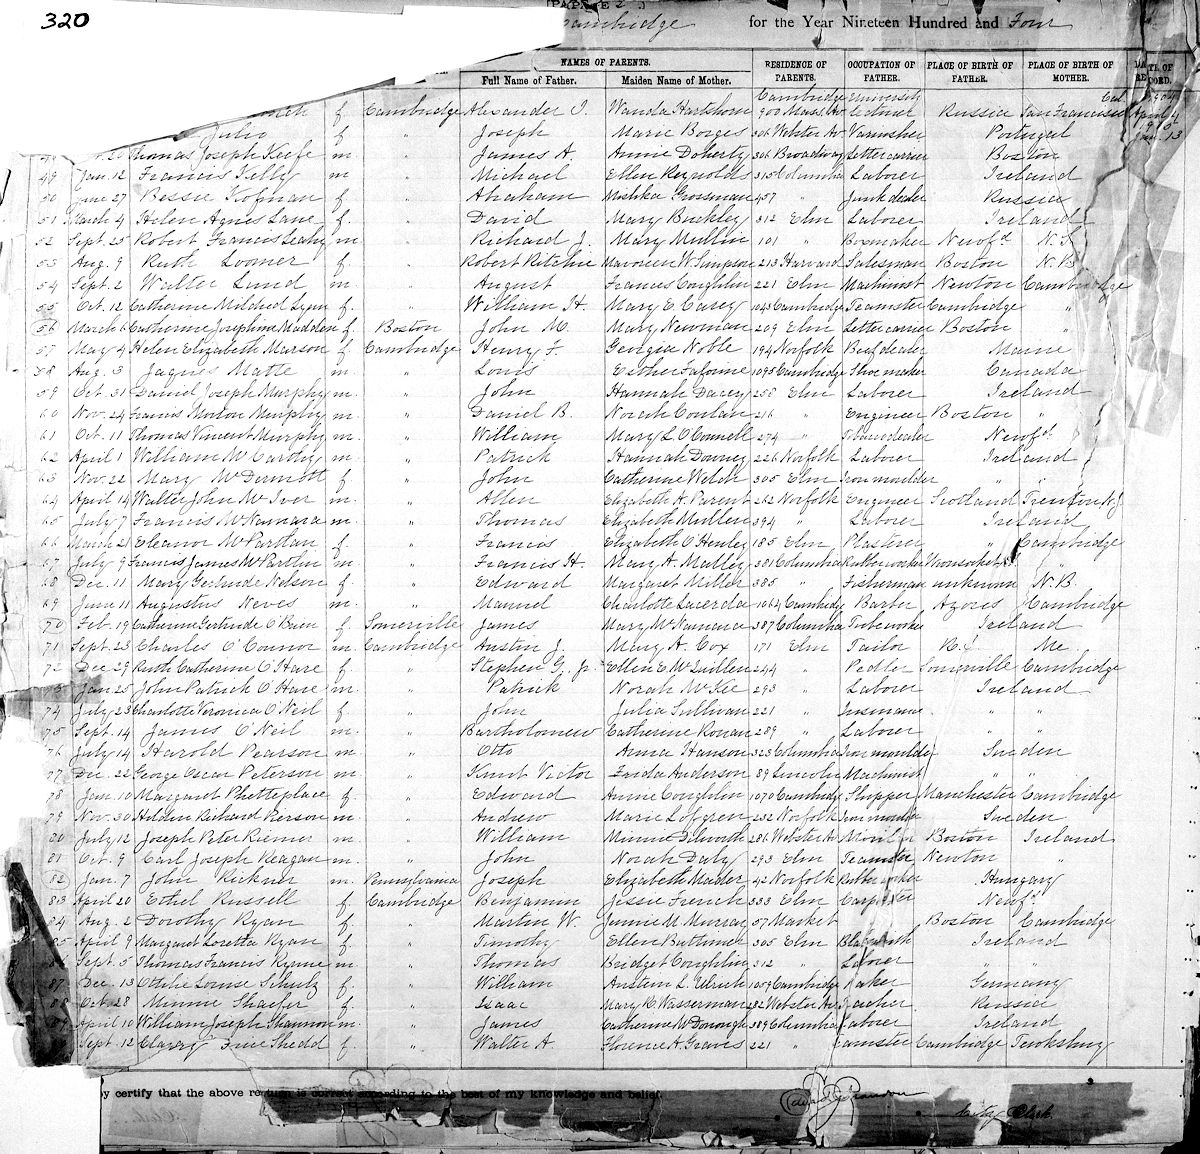 320
Cambridge for the Year Nineteen Hundred and Four
NAMES OF PARENTS. RESIDENCE OF PARENTS. OCCUPATION OF FATHER. PLACE OF BIRTH OF FATHER. PLACE OF BIRTH OF MOTHER. DATE OF RECORD.
Full Name of Father. Maiden Name of Mother.
f Cambridge Alexander Wanda Hartshorn Cambridge 900 Mass. Av University Lecturer Russia San Francisco April 4
Julio f " Joseph Marie Borges 306 Webster Av Varnisher Portugal 1905
Thomas Joseph Keefe m " James A. Annie Doherty 306 Broadway Letter carrier Boston
49 Jan. 12 Francis Kelly m " Michael Ellen Reynolds 315 Columbia Laborer Ireland
50 June 27 Bessie Kofman f " Abraham Grossman 457 " Junk dealer Russia
51 March 4 Helen Agnes Lane f " David Mary Buckley 312 Elm Laborer Ireland
52 Sept. 25 Robert Francis Leahy m " Richard J. Mary Mullin 101 " Boxmaker Newf'd N.S.
53 Aug. 9 Ruth Loomer f. " Robert Ritchie W. Simpson 213 Harvard Salesman Boston N.B.
54 Sept. 2 Walter Lund m " August Frances Coughlin 221 Elm Machinist Newton Cambridge
55 Oct. 12 Catherine Mildred Lynn f. " William H. Mary E. Casey 1043 Cambridge Teamster Cambridge "
56 March 6 Catherine Josephine Madden f. Boston John M. Mary Newman 209 Elm Letter carrier Boston "
57 May 4 Helen Elizabeth Marson f Cambridge Henry F. Georgia Noble 194 Norfolk Beef dealer Maine
58 Aug. 3 Matte m. " Louis Esther Lafonne 1095 Cambridge Shoemaker Canada
59 Oct. 31 Daniel Joseph Murphy m. " John Hannah Dacey 258 Elm Laborer Ireland
60 Nov. 24 Francis Morton Murphy m. " Daniel B. Norah Conlan 216 " Engineer Boston "
61 Oct. 11 Thomas Vincent Murphy m. " William Mary L. O'Connell 274 " Tobacco dealer Newf'd
62 April 1 William McCarthy m. " Patrick Hannah Downey 226 Norfolk Laborer Ireland
63 Nov. 22 Mary McDermott f " John Catherine Welch 305 Elm Iron moulder " "
64 April 14 Walter John McIver m. " Allen Elizabeth A. Parent 262 Norfolk Engineer Scotland Trenton N.J.
65 July 7 Francis McNamara m. " Thomas Elizabeth Mullen 394 " Laborer Ireland
66 March 21 Eleanor McPartlan f " Francis Elizabeth O'Henley 185 Elm Plasterer " Cambridge
67 July 9 Francis James McPartlin m. " Francis H. Mary A. Malley 381 Columbia Rubber worker Woonsocket "
68 Dec. 11 Mary Gertrude Nelson f. " Edward Margaret Miller 385 " Fisherman unknown N.B.
69 June 11 Augustus Neves m. " Manuel Charlotte Lacerda 1064 Cambridge Barber Azores Cambridge
70 Feb. 19 Catherine Gertrude O'Brien f Somerville James Mary McNamara 387 Columbia Tubeworker Ireland
71 Sept. 23 Charles O'Connor m. Cambridge Austin J. Mary A. Cox 171 Elm Tailor Me.
72 Dec. 29 Ruth Catherine O'Hare f " Stephen G. Jr. Ellen E. McQuillen 244 " Pedler Somerville Cambridge
73 Jan. 25 John Patrick O'Hare m. " Patrick Norah McKee 293 " Laborer Ireland
74 July 23 Charlotte Veronica O'Neil f. " John Julia Sullivan 221 " Insurance " "
75 Sept. 14 James O'Neil m. " Bartholomew Catherine Ronan 289 " Laborer " "
76 July 14 Harold Pearson m. " Otto Anna Hanson 323 Columbia Iron moulder Sweden
77 Dec. 22 George Oscar Peterson m. " Knut Victor Frida Anderson 89 Lincoln Machinist " "
78 Jan. 10 Margaret Phetteplace f. " Edward Annie Coughlin 1070 Cambridge Shipper Manchester Cambridge
79 Nov. 30 Hilding Richard Pierson m. " Andrew Marie Lofgren 232 Norfolk Iron moulder Sweden
80 July 12 Joseph Peter Riemer m. " William Minnie Dilworth 286 Webster Av Boston Ireland
81 Oct. 9 Carl Joseph Reagan m. " John Norah Daly 293 Elm Teamster Newton "
82 Jan. 7 John Rickner m. Pennsylvania Joseph Elizabeth Mader 42 Norfolk Rubber worker Hungary
83 April 20 Ethel Russell f Cambridge Benjamin Jessie French 333 Elm Carpenter Newf'd
84 Aug. 2 Dorothy Ryan f. " Martin W. Jennie M. Murray 57 Market Boston Cambridge
85 April 9 Margaret Loretta Ryan f. " Timothy Ellen Buttimer 305 Elm Blacksmith Ireland
Sept. 5 Thomas Francis Rynne m. " Thomas Bridget Coughlin 312 " Laborer " "
87 Dec. 13 Ottilie Louise Schulz f " William L. Ulrich 1059 Cambridge Baker Germany
88 Oct. 28 Minnie Shaefer f. " Isaac Mary R. Wasserman 282 Webster Av Teacher Russia
89 April 10 William Joseph Shannon m. " James Catherine McDonough 389 Columbia Laborer Ireland
Sept. 12 Shedd f. " Walter A. Florence A. Graves 221 " Teamster Cambridge Tewksbury
y certify that the above return is correct according to the best of my knowledge and belief.
City Clerk